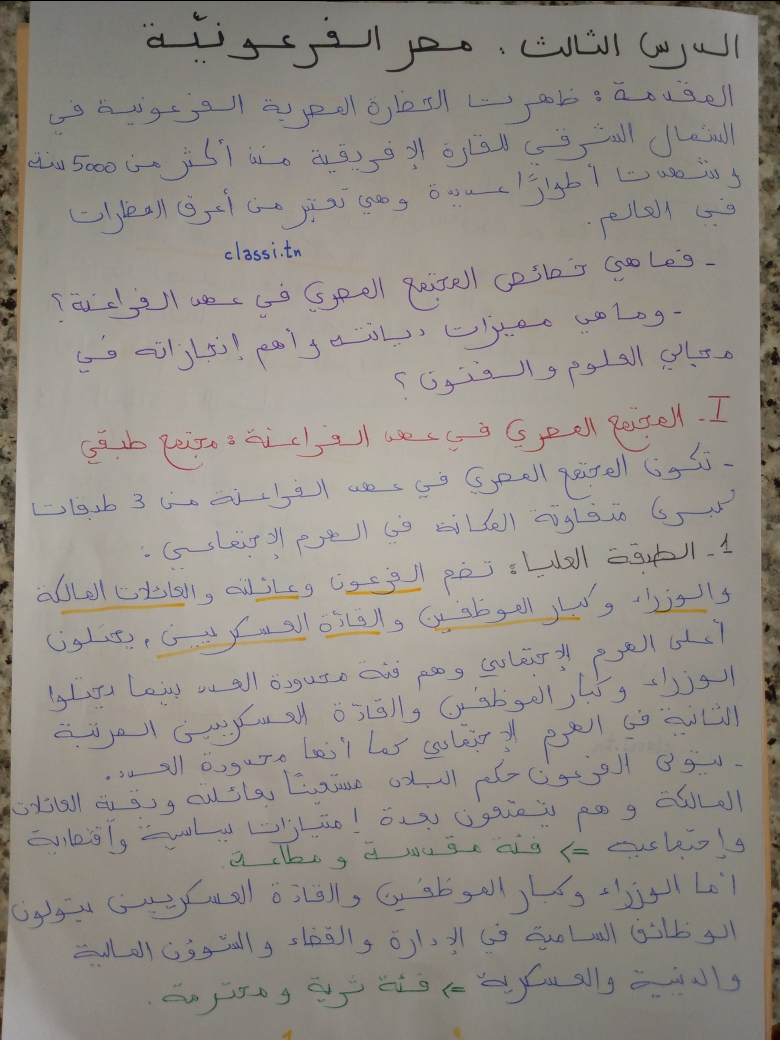 الدرس الثالث : مصر الفرعونيّة
المقدمة : ظهرت الحضارة المصرية الفرعونية في
الشمال الشرقي للقارة الإفريقية منذ أكثر من 5000 سنة
وشهدت أطوارًا عديدة وهي تعتبر من أعرق الحضارات
في العالم.
classi.tn
- فما هي خصائص المجتمع المصري في عهد الفراعنة؟
- وما هي مميزات ديانته وأهم إنجازاته في
مجالي العلوم والفنون ؟
I- المجتمع المصري في عهد الفراعنة : مجتمع طبقي
- تكون المجتمع المصري في عهد الفراعنة من 3 طبقات
كبرى متفاوتة المكانة في الهرم الإجتماعي :
1- الطبقة العليا : تضم الفرعون وعائلته والعائلات المالكة
والوزراء وكبار الموظفين والقادة العسكريين ، يحتلون
أعلى الهرم الإجتماعي وهم فئة محدودة العدد بينما يحتلوا
الوزراء وكبار الموظفين والقادة العسكريين المرتبة
الثانية في الهرم الإجتماعي كما أنها محدودة العدد.
- يتولى الفرعون حكم البلاد مستعينًا بعائلته وبقية العائلات
المالكة وهم يتمتعون بعدة إمتيازات سياسية وإقتصادية
وإجتماعية => فئة مقدسة ومطاعة.
أما الوزراء وكبار الموظفين والقادة العسكريين يتولون
الوظائف السامية في الإدارة والقضاء والشؤون المالية
والدينية والعسكرية => فئة ثرية ومحترمة.